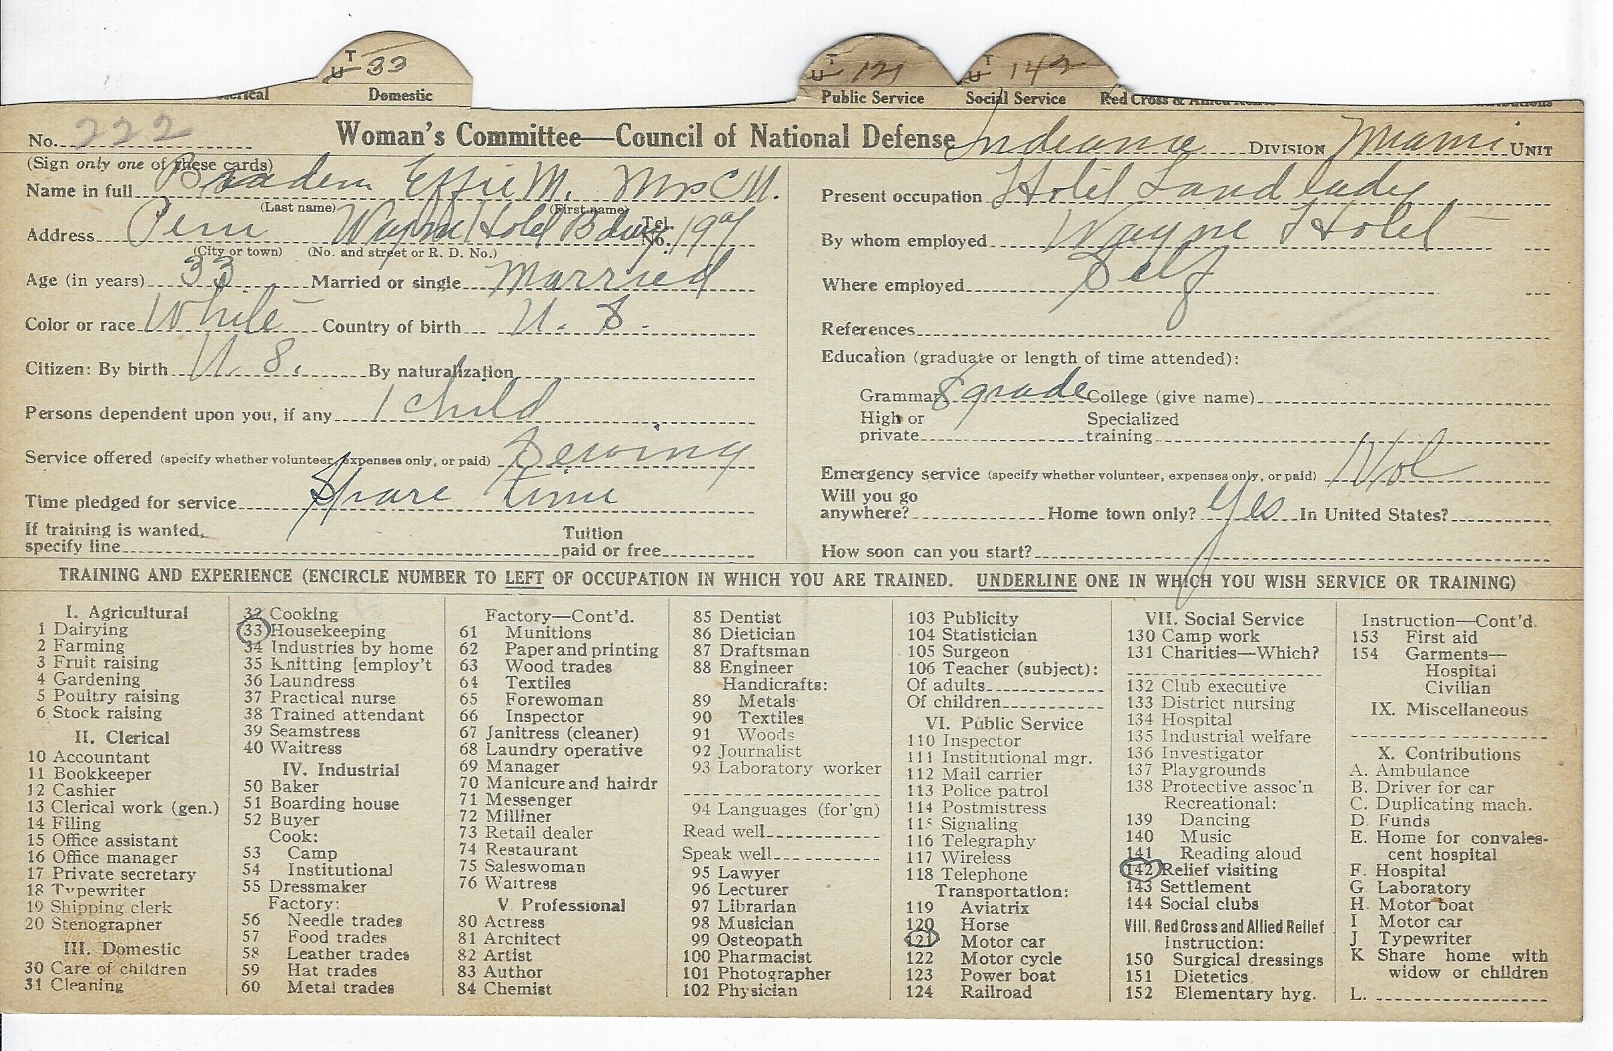 T
U 33
T
U 121
T
U 142
Domestic
Public Service
Social Service
No. 222
Woman's Committee—Council of National Defense Indiana DIVISION Miami UNIT
(Sign only one of these cards)
Name in full Braden Effie M. Mrs C M.
(Last name) (First name)
Address Peru Wayne Hotel Bdwy. Tel. No. 197
(City or town) (No. and street or R. D. No.)
Age (in years) 33 Married or single Married
Color or race White Country of birth U. S.
Citizen: By birth U. S. By naturalization
Persons dependent upon you, if any 1 child
Service offered (specify whether volunteer, expenses only, or paid) Sewing
Time pledged for service Spare time
If training is wanted, specify line Tuition paid or free
Present occupation Hotel Landlady
By whom employed Wayne Hotel
Where employed Self
References
Education (graduate or length of time attended):
Grammar 8 grade College (give name)
High or private Specialized training
Emergency service (specify whether volunteer, expenses only, or paid) Vol
Will you go anywhere? Home town only? Yes In United States?
How soon can you start?
TRAINING AND EXPERIENCE (ENCIRCLE NUMBER TO LEFT OF OCCUPATION IN WHICH YOU ARE TRAINED. UNDERLINE ONE IN WHICH YOU WISH SERVICE OR TRAINING)
I. Agricultural
1 Dairying
2 Farming
3 Fruit raising
4 Gardening
5 Poultry raising
6 Stock raising
II. Clerical
10 Accountant
11 Bookkeeper
12 Cashier
13 Clerical work (gen.)
14 Filing
15 Office assistant
16 Office manager
17 Private secretary
18 Typewriter
19 Shipping clerk
20 Stenographer
III. Domestic
30 Care of children
31 Cleaning
32 Cooking
33 Housekeeping
34 Industries by home
35 Knitting [employ't
36 Laundress
37 Practical nurse
38 Trained attendant
39 Seamstress
40 Waitress
IV. Industrial
50 Baker
51 Boarding house
52 Buyer
Cook:
53 Camp
54 Institutional
55 Dressmaker
Factory:
56 Needle trades
57 Food trades
58 Leather trades
59 Hat trades
60 Metal trades
Factory—Cont'd.
61 Munitions
62 Paper and printing
63 Wood trades
64 Textiles
65 Forewoman
66 Inspector
67 Janitress (cleaner)
68 Laundry operative
69 Manager
70 Manicure and hairdr
71 Messenger
72 Milliner
73 Retail dealer
74 Restaurant
75 Saleswoman
76 Waitress
V Professional
80 Actress
81 Architect
82 Artist
83 Author
84 Chemist
85 Dentist
86 Dietician
87 Draftsman
88 Engineer
Handicrafts:
89 Metals
90 Textiles
91 Woods
92 Journalist
93 Laboratory worker
94 Languages (for'gn)
Read well
Speak well
95 Lawyer
96 Lecturer
97 Librarian
98 Musician
99 Osteopath
100 Pharmacist
101 Photographer
102 Physician
103 Publicity
104 Statistician
105 Surgeon
106 Teacher (subject):
Of adults
Of children
VI. Public Service
110 Inspector
111 Institutional mgr.
112 Mail carrier
113 Police patrol
114 Postmistress
115 Signaling
116 Telegraphy
117 Wireless
118 Telephone
Transportation:
119 Aviatrix
120 Horse
121 Motor car
122 Motor cycle
123 Power boat
124 Railroad
VII. Social Service
130 Camp work
131 Charities—Which?
132 Club executive
133 District nursing
134 Hospital
135 Industrial welfare
136 Investigator
137 Playgrounds
138 Protective assoc'n
Recreational:
139 Dancing
140 Music
141 Reading aloud
142 Relief visiting
143 Settlement
144 Social clubs
VIII. Red Cross and Allied Relief
Instruction:
150 Surgical dressings
151 Dietetics
152 Elementary hyg.
Instruction—Cont'd.
153 First aid
154 Garments—
Hospital
Civilian
IX. Miscellaneous
X. Contributions
A. Ambulance
B. Driver for car
C. Duplicating mach.
D. Funds
E. Home for convales-
cent hospital
F. Hospital
G Laboratory
H. Motor boat
I Motor car
J Typewriter
K Share home with
widow or children
L.